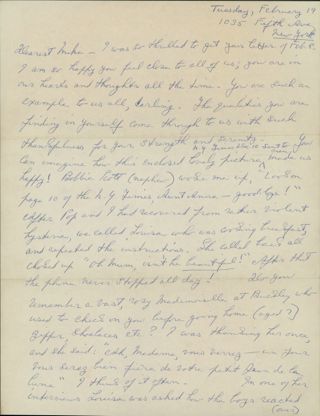 Tuesday, February 19
1035 Fifth Ave,
New York
Dearest Mike — I was so thrilled to get your letter of Feb 8.
I am so happy you feel close to all of us; you are in
our hearts and thoughts all the time. You are such an
example to us all, darling. The qualities you are
finding in yourself come through to us with such
thankfulness for your strength and serenity. You
can imagine how this enclosed lovely picture made us
happy! Bobbie (nephew) woke me up, "Look on
page 10 of the N.Y. Times, Aunt — goodbye!"
After Pop and I had recovered from rather violent
hysteria, we called Louisa who was cooking breakfast,
and repeated the instructions. She called back all
choked up "Oh Mum, isn't he beautiful!" After that
the phone never stopped all day! Do you
remember a vast, rosy Mademoiselle at Buckley who
used to check on you before going home (aged 7)
zipper, shoelaces etc? I was thanking her once,
and she said: "Ah, Madame, vous verrez — un jour
vous serez bien fière de votre petit de la
lune" I think of it often. In one of her
interviews Louisa was asked how the boys reacted
(over)